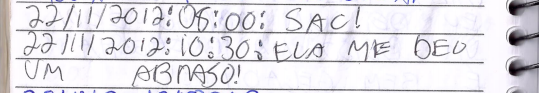 22/11/2012:08:00: SAC!
22/11/2012:10:30: ELA ME DEU
UM ABRASO!